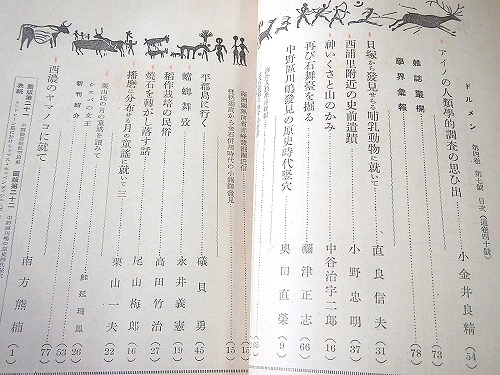 ドルメン 第四卷 第七號 目次 (通卷四十號)
アイノの人類學的調査の思ひ出 小金井良精 (54)
雜誌叢欄 73
學界彙報 78
貝塚から發見せらる哺乳動物に就いて 直良信夫 (31)
西浦里附近の史前遺蹟 小野忠明 (37)
神いくさと日のかみ 中谷治宇二郎 (16)
再び石舞臺を掘る 禰津正志 (66)
中野區川嶋發見の原史時代竪穴 奥田直榮 (9)
15
15
平郡島に行く 礒貝勇 (45)
蟷螂舞攷 永井義憲 (19)
稻作栽培の民俗 高田竹治 (27)
燒石を轉がし落す話 尾山梅郎 (16)
播磨に分布せる月の童謠に就いて 三 栗山一夫 (22)
栗山氏の月の童謠を讀みて 能延瑞鳳 (26)
シエバの女王 53
新刊紹介 77
西濃のヤマノコに就て 南方熊楠 (1)